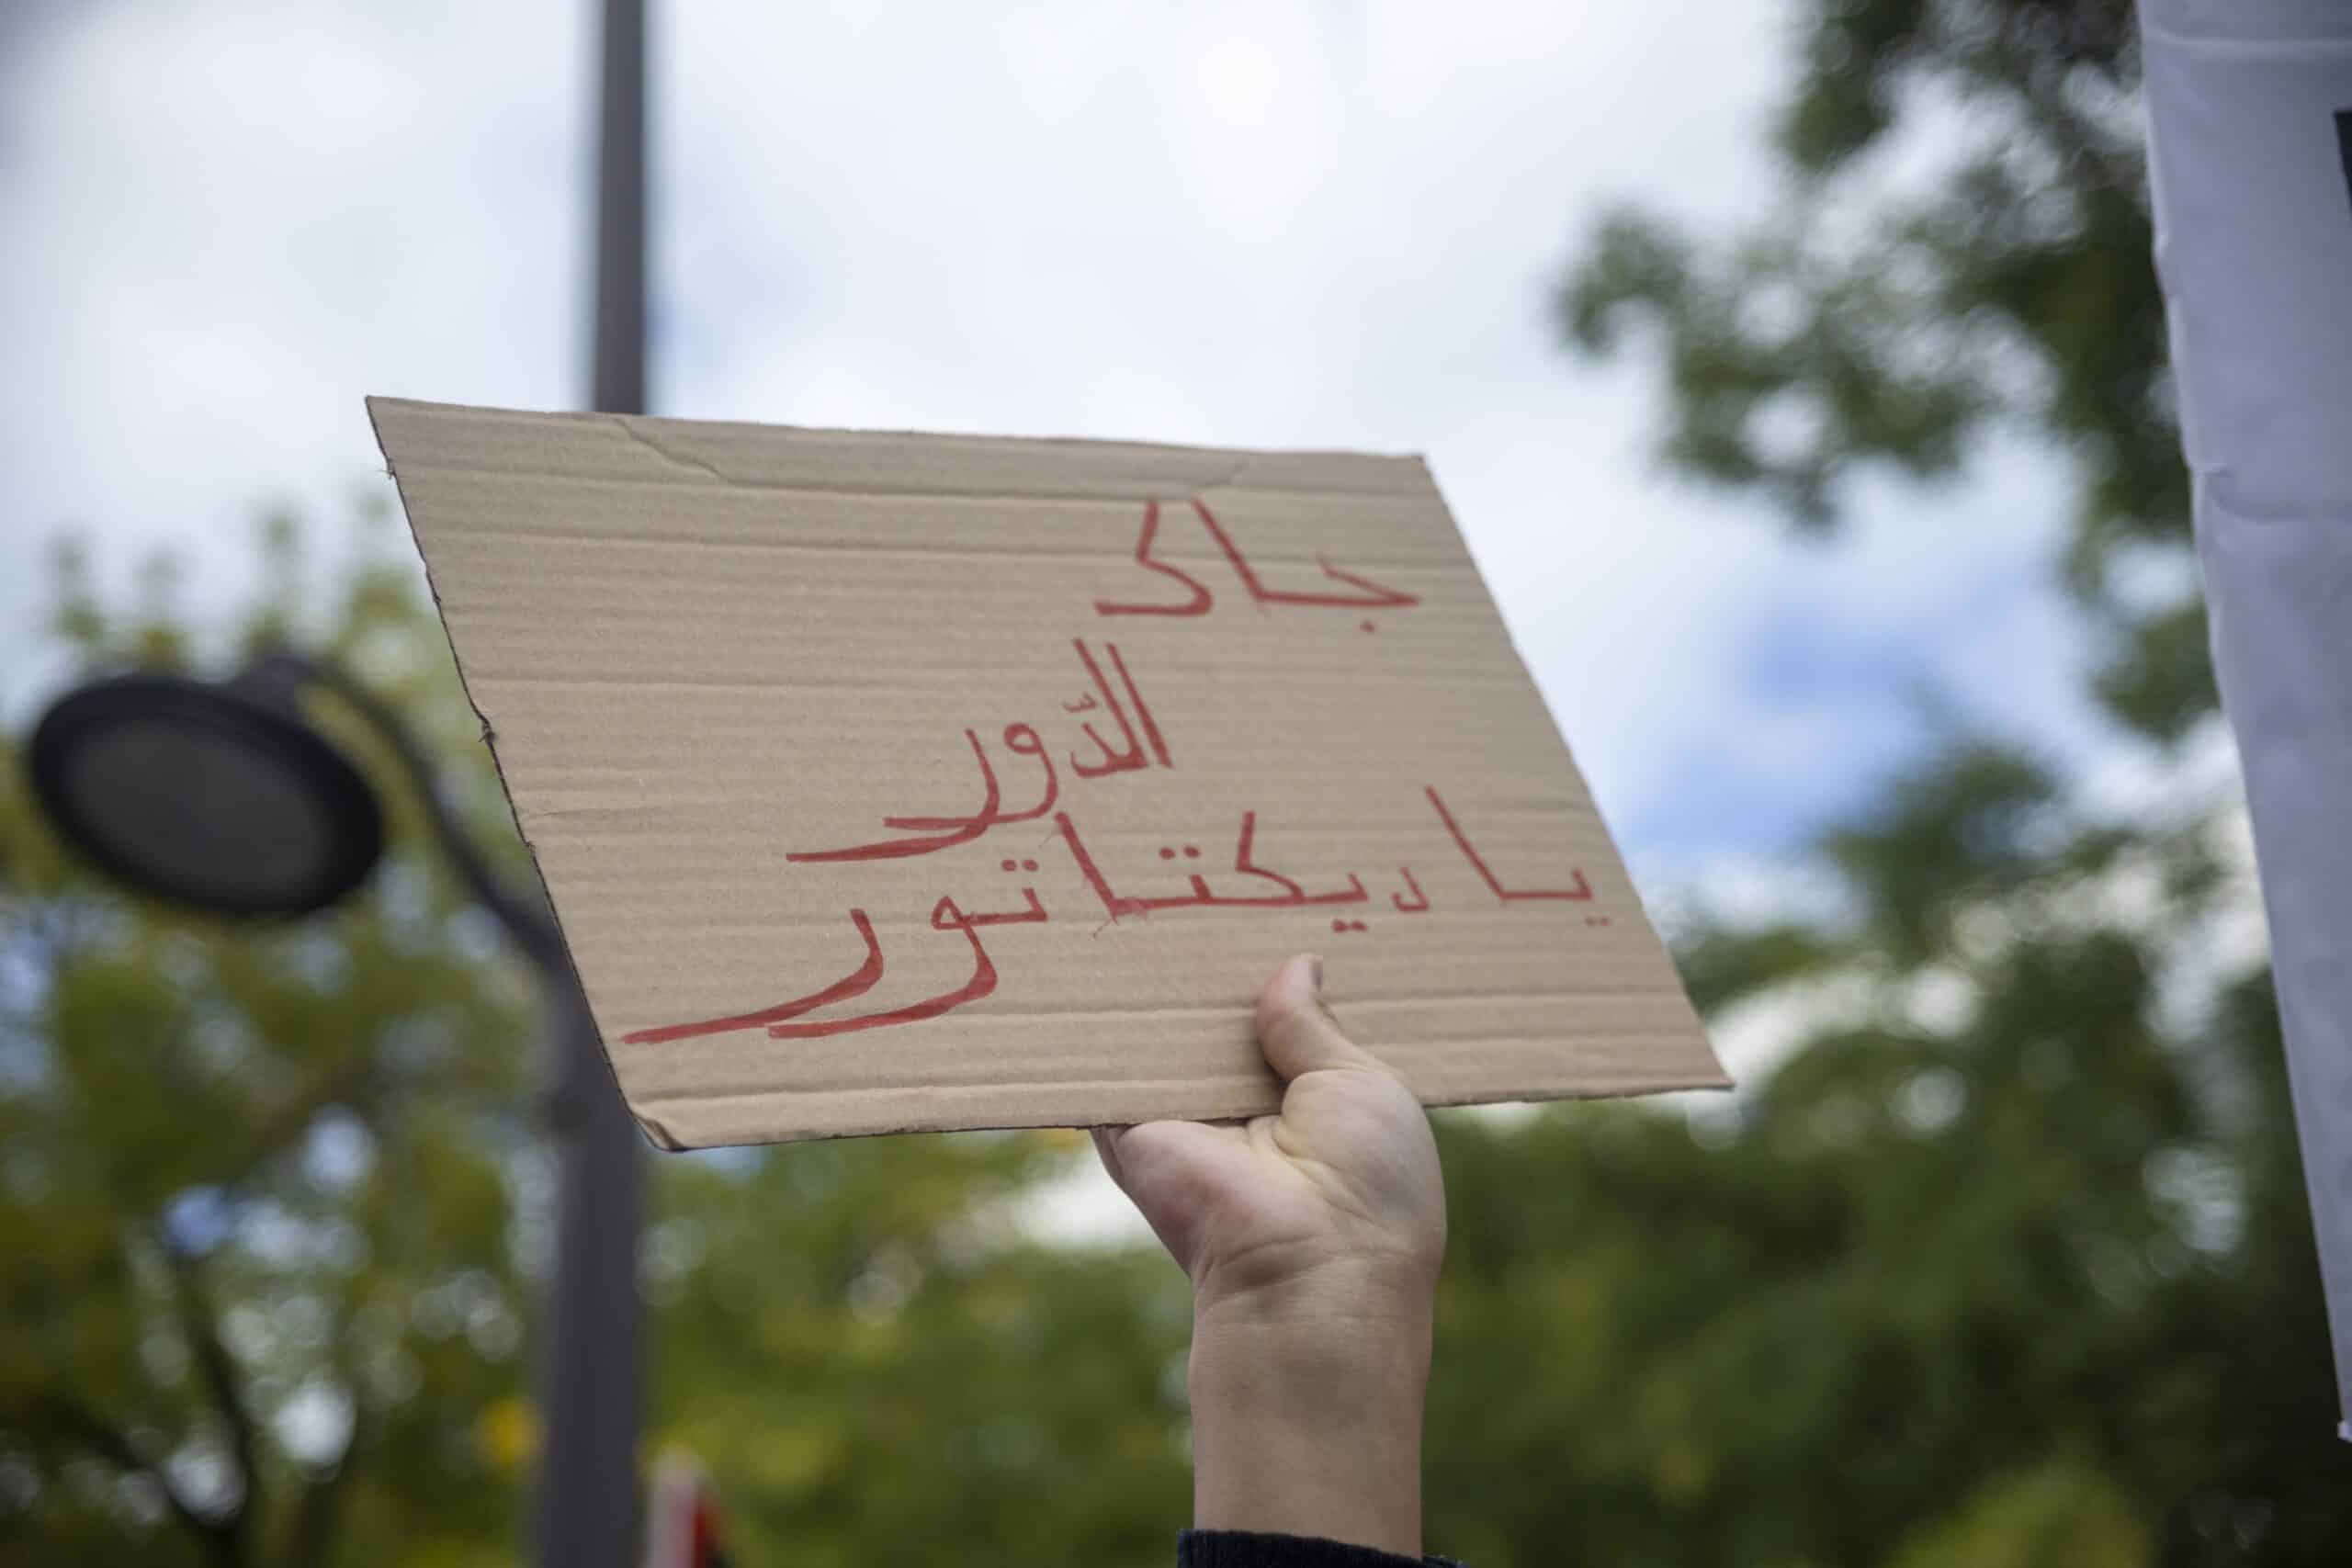 جاك
الدّور
يا ديكتاتور